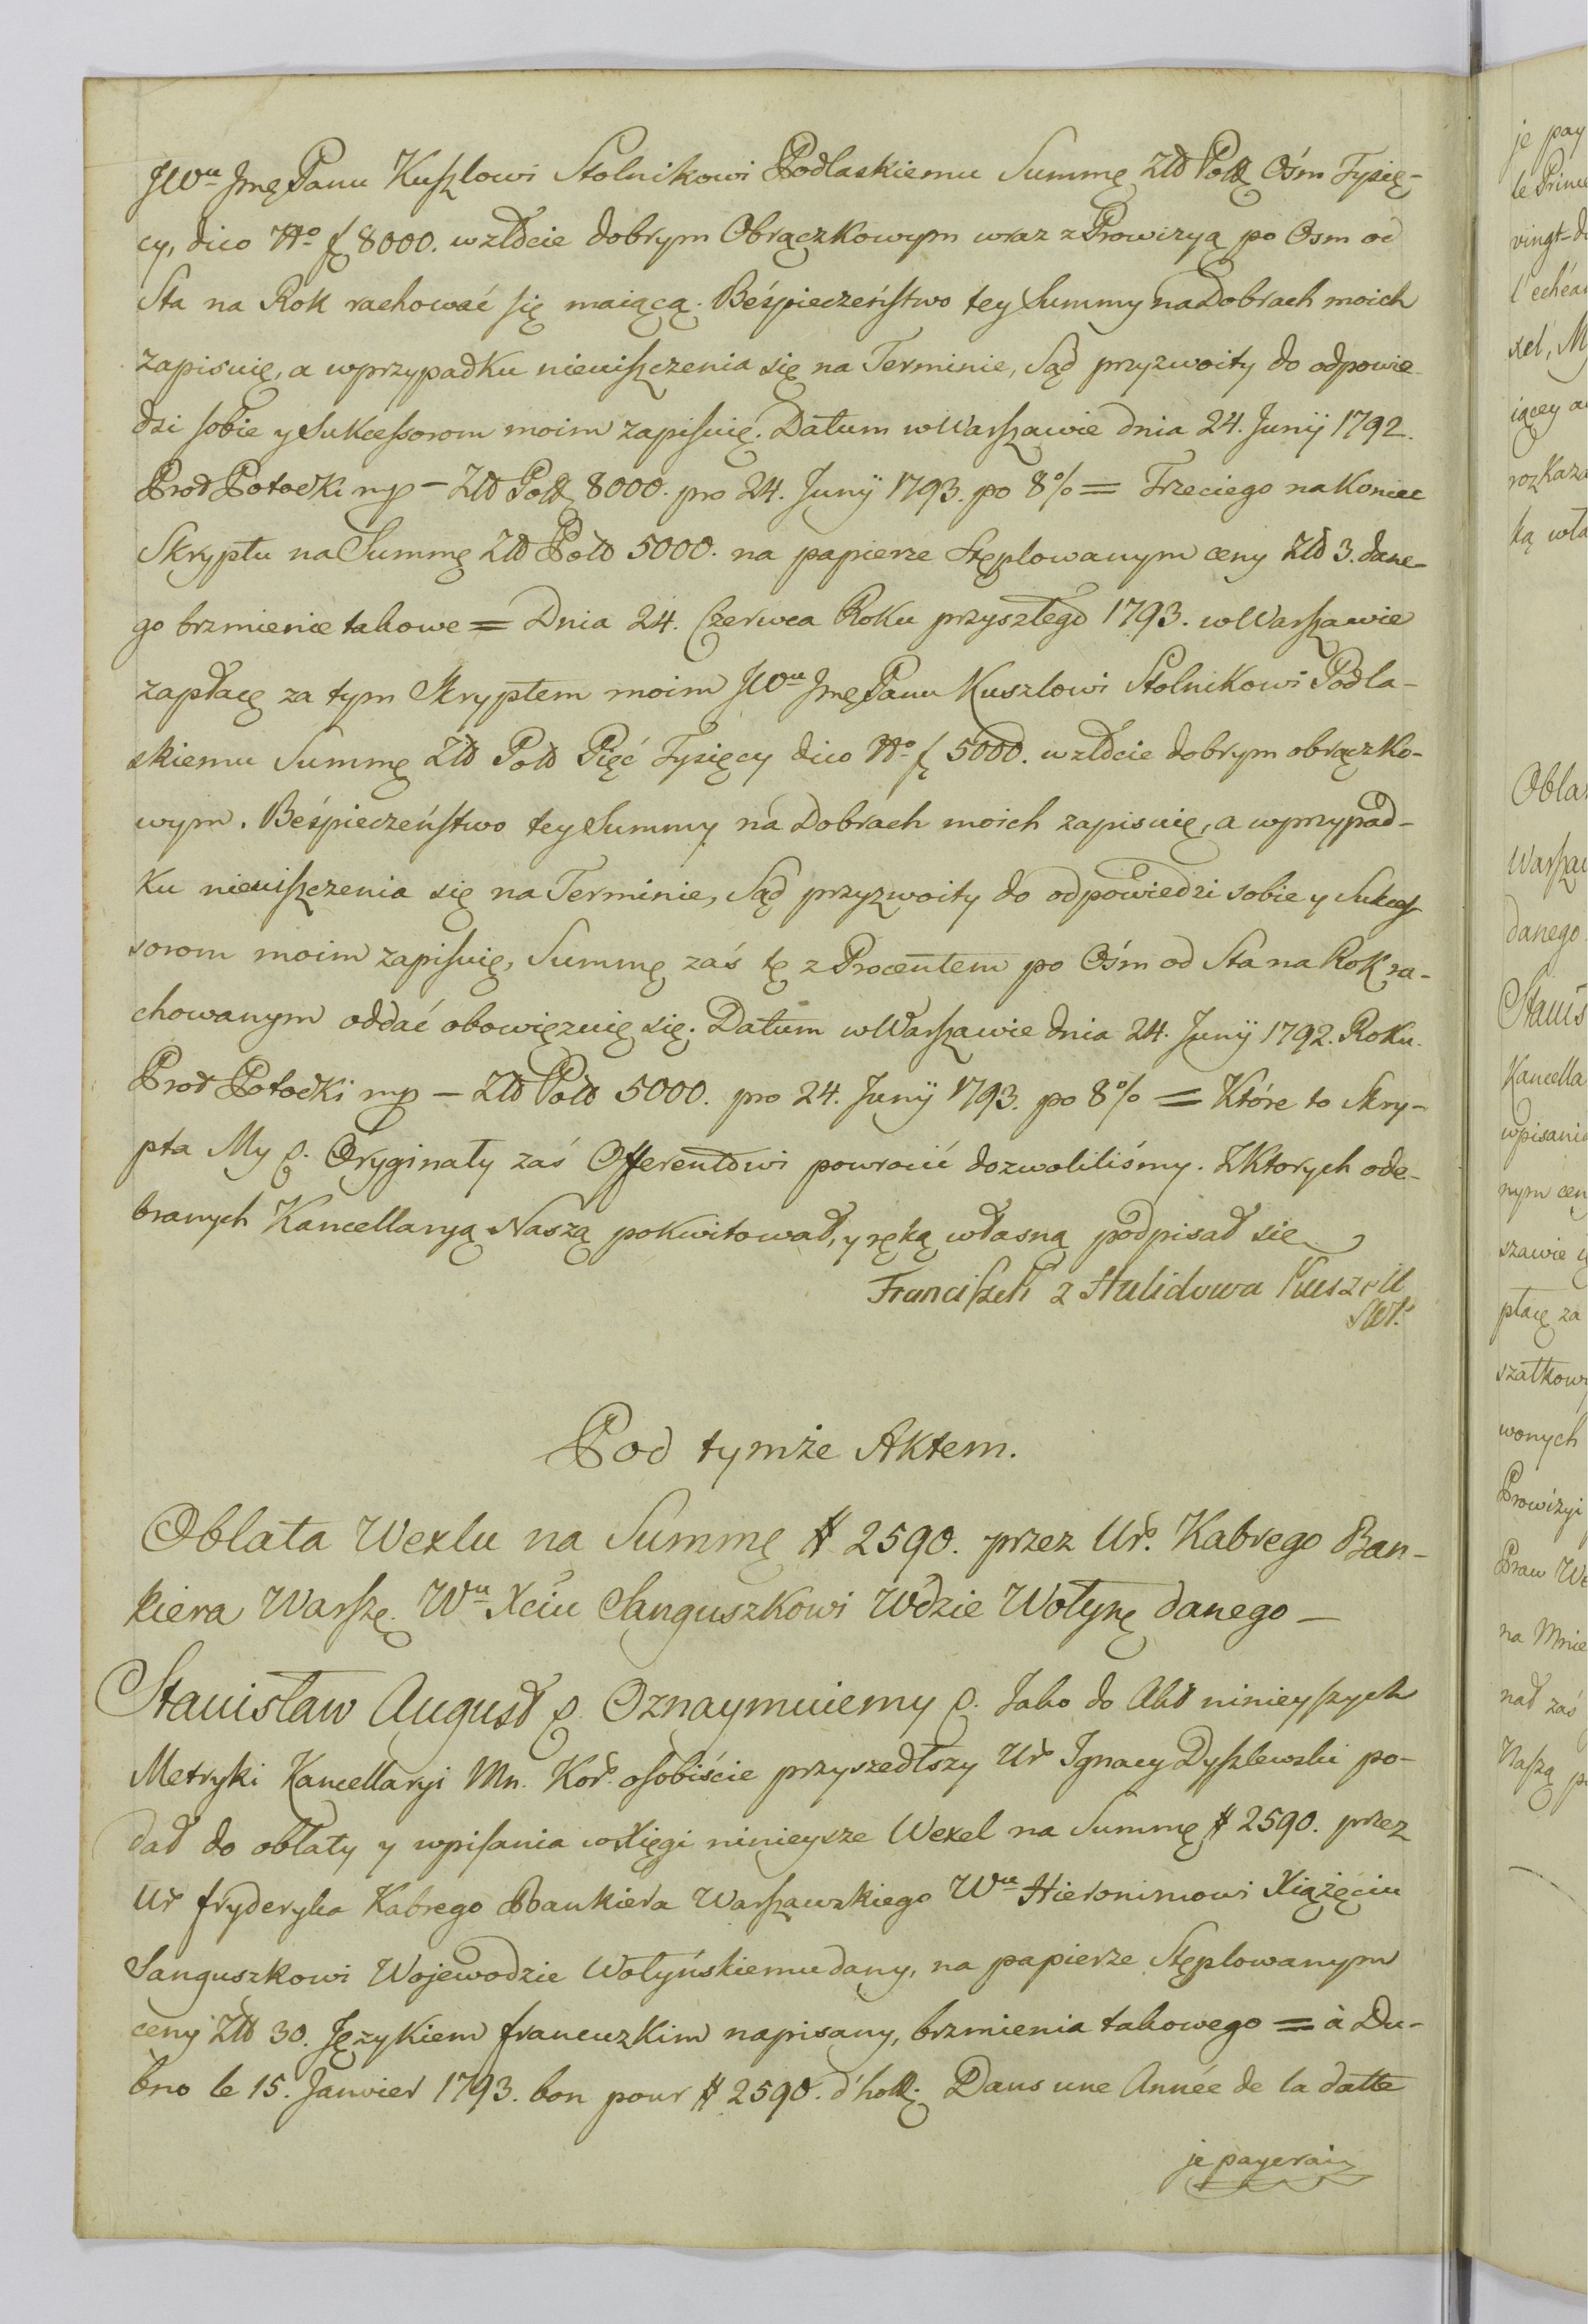 JWu Jmę Panu Kuszlowi Stolnikowi Podlaskiemu Summę Złł Polk Ośm Tysię-
cy, dico No f 8000. w złocie dobrym Obrączkowym wraz z Prowizyą po Osm od
Sta na Rok rachować się maiącą. Beśpieczeństwo tey Summy na Dobrach moich
zapisuię, a w przypadku nieuiszczenia się na Terminie, Sąd przyzwoity do odpowie-
dzi sobie y Sukcessorom moim zapisuię. Datum w Warszawie dnia 24. Junij 1792.
Prot Potocki mp – Złł Polk 8000. pro 24. Junij 1793. po 8% = Trzeciego na koniec
Skryptu na Summę Złł Poło 5000. na papierze Stęplowanym ceny Złł 3. dane-
go brzmienie takowe = Dnia 24. Czerwca Roku przyszłego 1793. w Warszawie
zapłacę za tym Skryptem moim JWu Jmę Panu Kuszlowi Stolnikowi Podla-
skiemu Summę Złł Poło Pięć Tysięcy dico No f 5000. w złocie dobrym obrączko-
wym. Beśpieczeństwo tey Summy na Dobrach moich zapisuię, a w przypad-
ku nieuiszczenia się na Terminie, Sąd przyzwoity do odpowiedzi sobie y Sukces-
sorom moim zapisuię, Summę zaś tę z Procentem po Ośm od Sta na Rok ra-
chowanym oddać obowięzuię się. Datum w Warszawie dnia 24. Junij 1792. Roku.
Prot Potocki mp – Złł Poło 5000. pro 24. Junij 1793. po 8% = Które to Skry-
pta My &. Oryginały zaś Offerentowi powrócić dozwoliliśmy. Z Ktorych ode-
branych Kancellaryą Naszą pokwitował, y ręką własną podpisał się
Franciszek z Kuszell
Pod tymże Aktem.
Oblata Wexlu na Summę # 2590. przez Ur. Kabrego Ban-
kiera Warszę. Wu Xciu Sanguszkowi Wdzie Wołynę danego –
Stanisław August &. Oznaymuiemy &. Jako do Akt ninieyszych
Metryki Kancellaryi Mn. Kor. osobiście przyszedłszy Ur Ignacy Dyszlewski po-
dał do oblaty y wpisania w Xięgi ninieysze Wexel na Summę # 2590. przez
Ur Fryderyka Kabrego Bankiera Warszawskiego Wu Hieronimowi Xiążęciu
Sanguszkowi Wojewodzie Wołyńskiemu dany, na papierze Stęplowanym
ceny Złł 30. Językiem francuzkim napisany, brzmienia takowego = à Du-
bno le 15. Janvier 1793. bon pour # 2590. d'holl. Dans une Année de la datte
je payerai
je pay
le Prince
vingt-d
l'echéan
xel, M
iącey a
rozkaza
ką wła
Obla
Warsza
danego
Stanis
Kancella
wpisania
nym cen
szawie
płacę za
szałkow
wonych
Prowizyi
Praw We
na Mnie
nał zaś
Naszą p